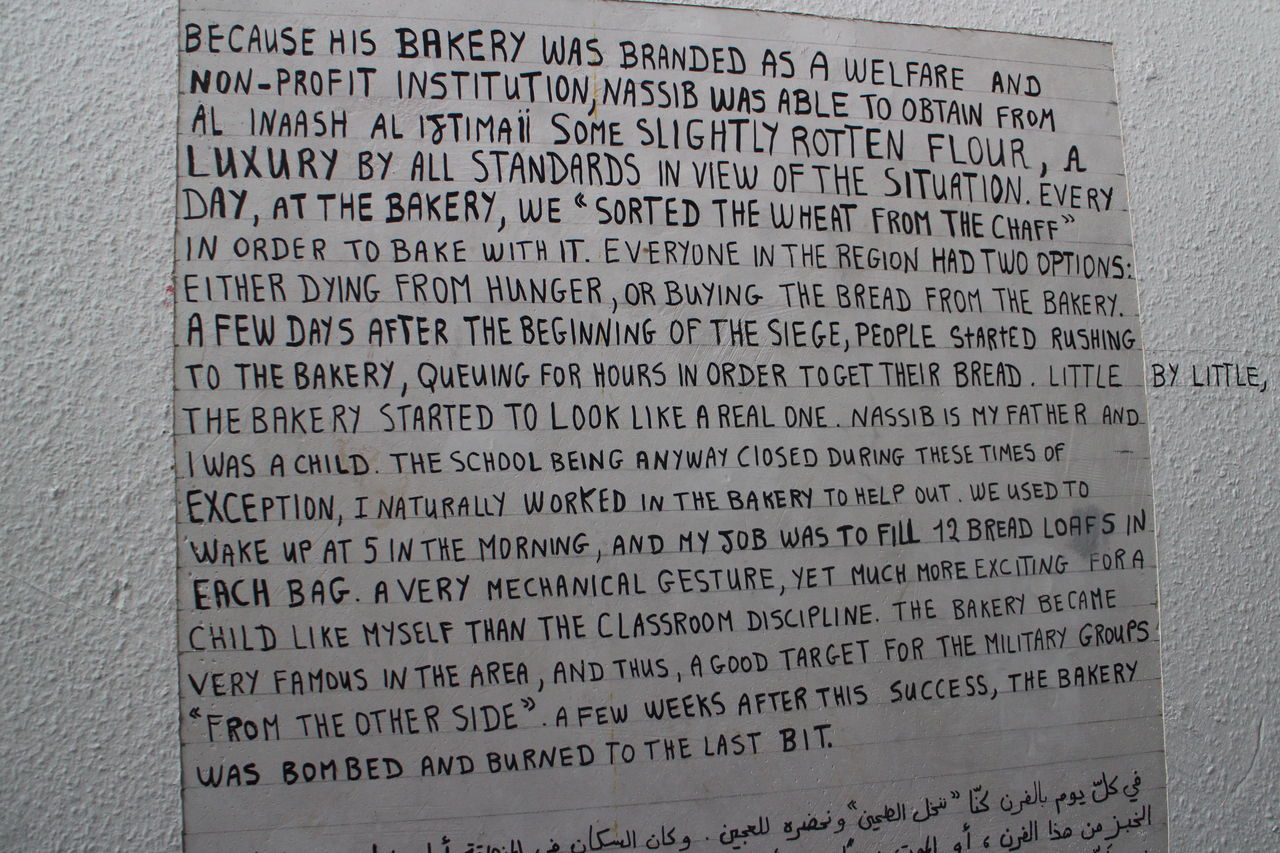 BECAUSE HIS BAKERY WAS BRANDED AS A WELFARE AND
NON-PROFIT INSTITUTION, NASSIB WAS ABLE TO OBTAIN FROM
AL INAASH AL IJTIMAÏÏ SOME SLIGHTLY ROTTEN FLOUR, A
LUXURY BY ALL STANDARDS IN VIEW OF THE SITUATION. EVERY
DAY, AT THE BAKERY, WE “SORTED THE WHEAT FROM THE CHAFF”
IN ORDER TO BAKE WITH IT. EVERYONE IN THE REGION HAD TWO OPTIONS:
EITHER DYING FROM HUNGER, OR BUYING THE BREAD FROM THE BAKERY.
A FEW DAYS AFTER THE BEGINNING OF THE SIEGE, PEOPLE STARTED RUSHING
TO THE BAKERY, QUEUING FOR HOURS IN ORDER TO GET THEIR BREAD. LITTLE BY LITTLE,
THE BAKERY STARTED TO LOOK LIKE A REAL ONE. NASSIB IS MY FATHER AND
I WAS A CHILD. THE SCHOOL BEING ANYWAY CLOSED DURING THESE TIMES OF
EXCEPTION, I NATURALLY WORKED IN THE BAKERY TO HELP OUT. WE USED TO
WAKE UP AT 5 IN THE MORNING, AND MY JOB WAS TO FILL 12 BREAD LOAFS IN
EACH BAG. A VERY MECHANICAL GESTURE, YET MUCH MORE EXCITING FOR A
CHILD LIKE MYSELF THAN THE CLASSROOM DISCIPLINE. THE BAKERY BECAME
VERY FAMOUS IN THE AREA, AND THUS, A GOOD TARGET FOR THE MILITARY GROUPS
“FROM THE OTHER SIDE”. A FEW WEEKS AFTER THIS SUCCESS, THE BAKERY
WAS BOMBED AND BURNED TO THE LAST BIT.
في كلّ يوم بالفرن كنّا “ننخل الطحين” ونحضره للعجين. وكان السكان في
الخبز من هذا الفرن، أو